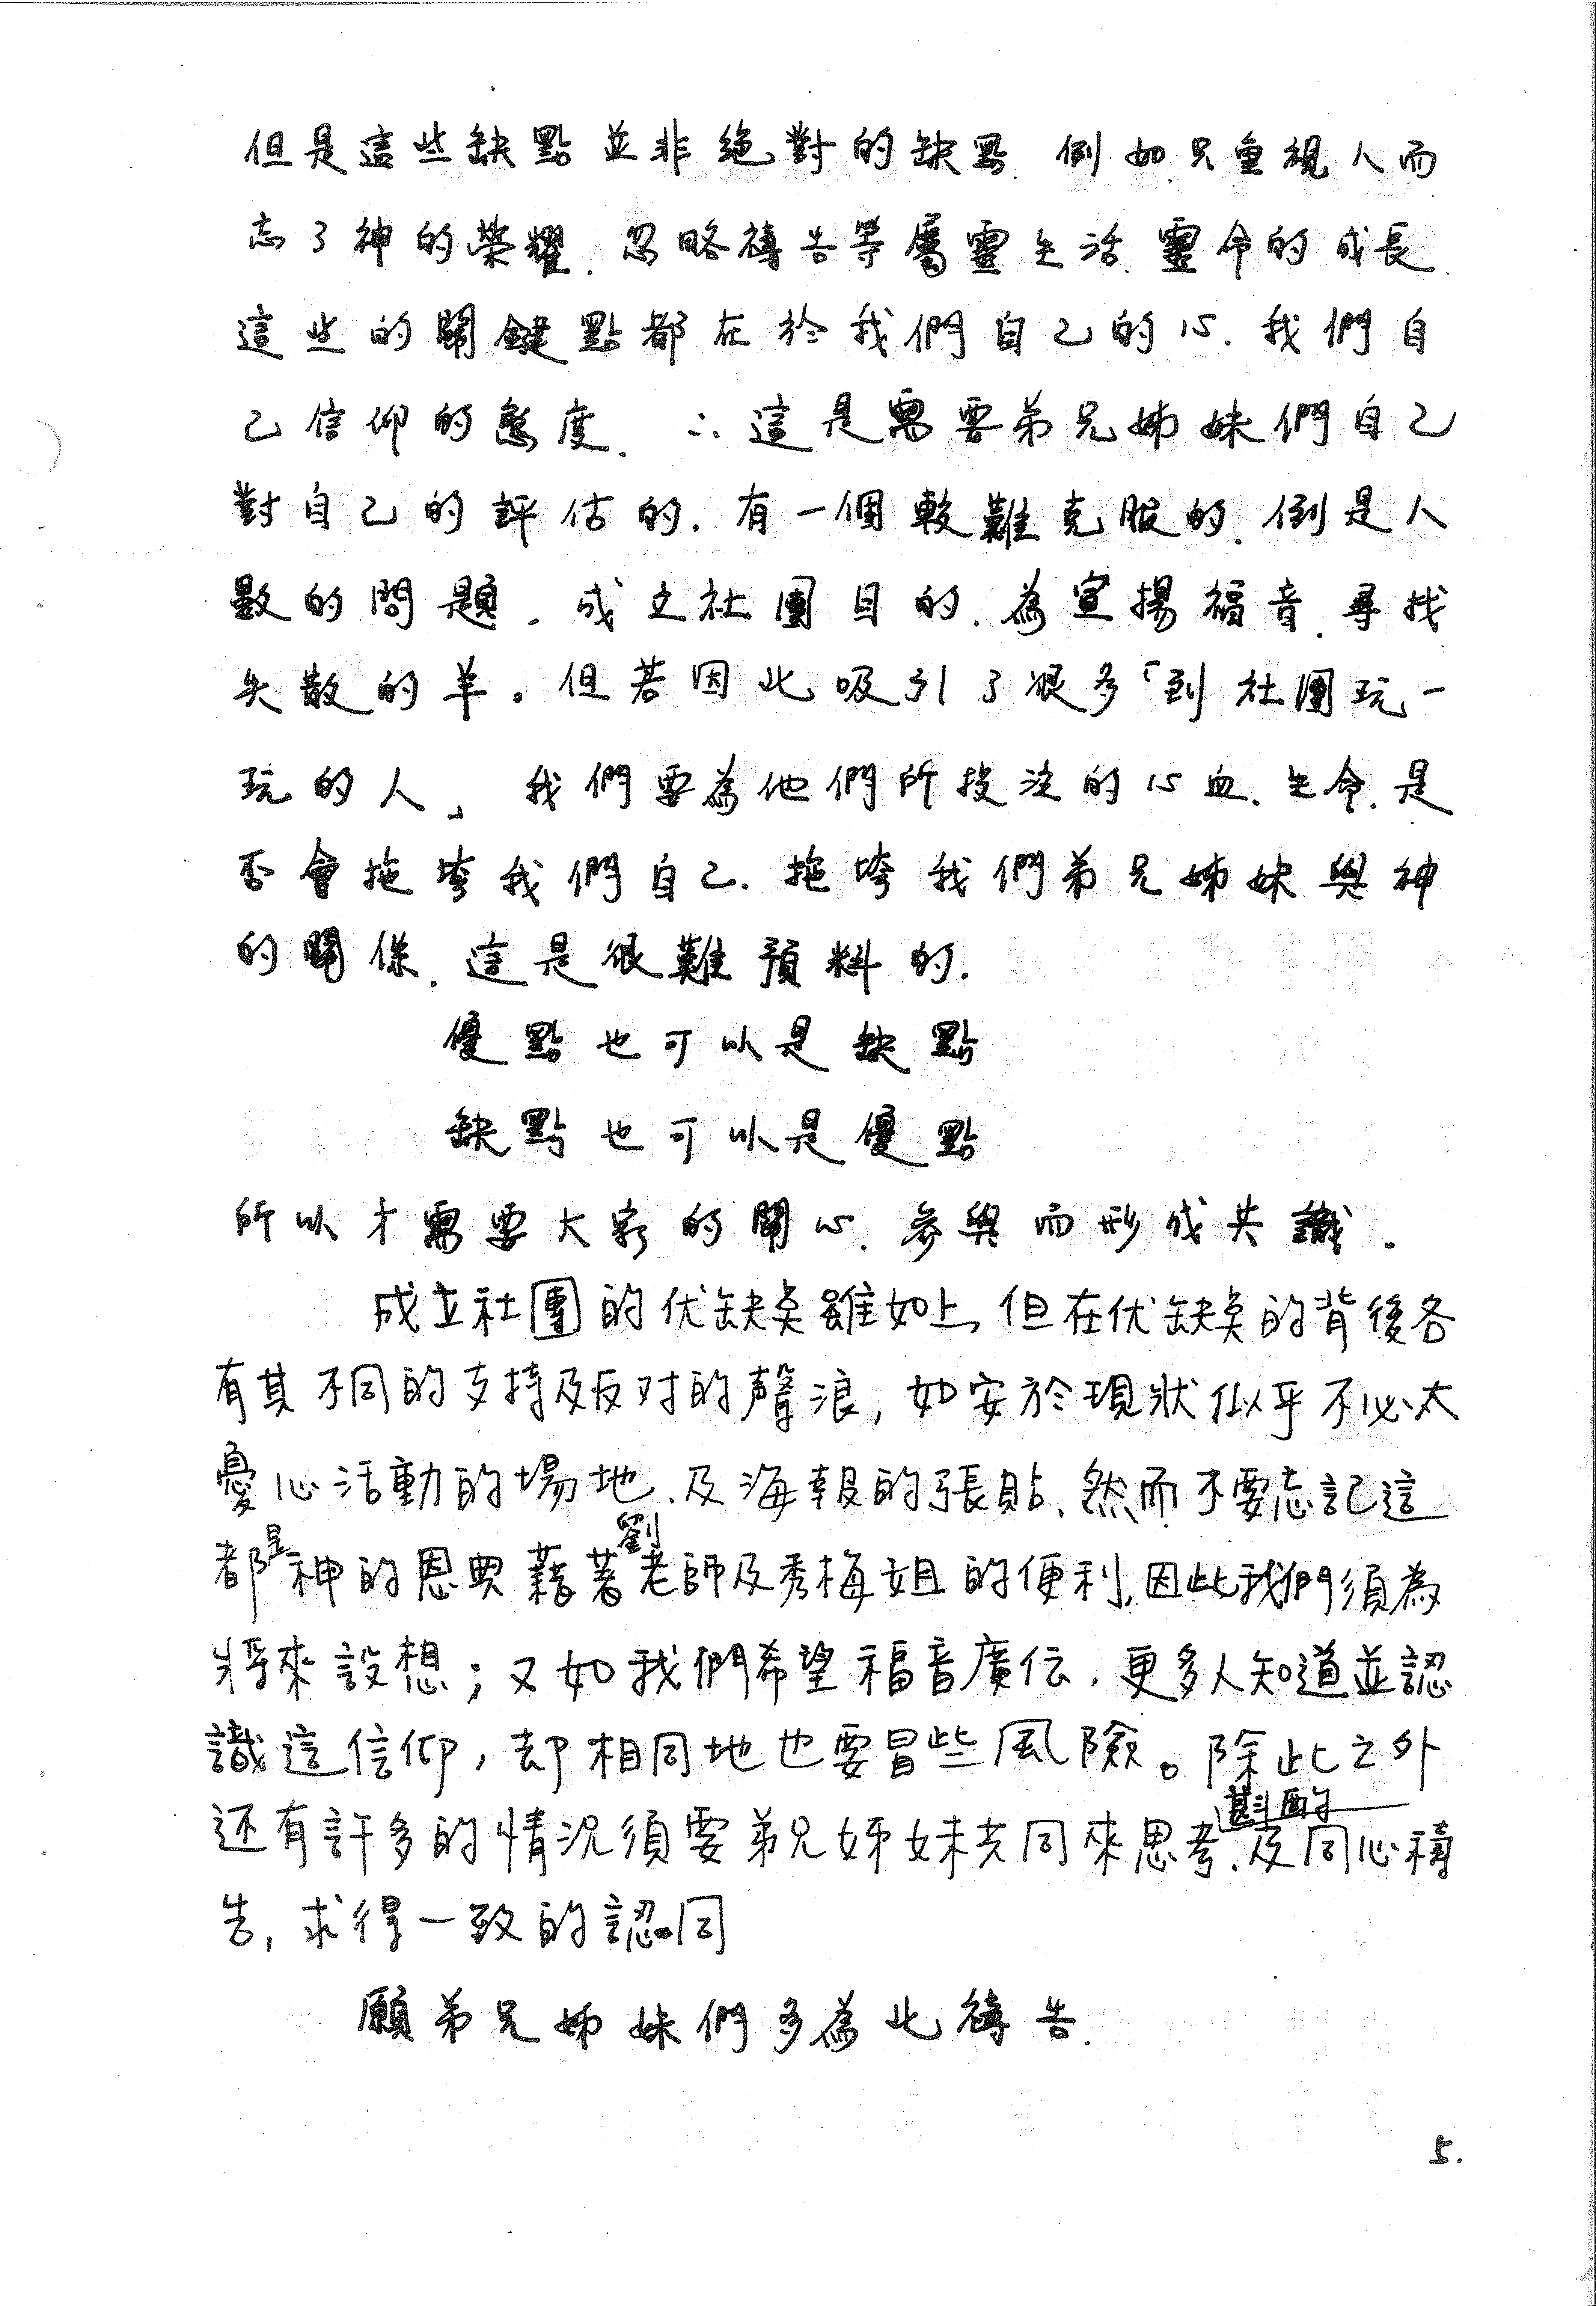 但是這些缺點並非絕對的缺點.例如只重視人而
忘了神的榮耀.忽略禱告等屬靈生活.靈命的成長.
這些的關鍵點都在於我們自己的心.我們自
己信仰的態度.∴這是需要弟兄姊妹們自己
對自己的評估的.有一個較難克服的.倒是人
數的問題.成立社團目的.為宣揚福音.尋找
失散的羊。但若因此吸引了很多「到社團玩一
玩的人」我們要為他們所投注的心血.生命.是
否會拖垮我們自己.拖垮我們弟兄姊妹與神
的關係.這是很難預料的.
優點也可以是缺點
缺點也可以是優點
所以才需要大家的關心.參與而形成共識.
成立社團的优缺奌雖如上,但在优缺奌的背後各
有其不同的支持及反对的聲浪,如安於現狀似乎不必太
憂心活動的場地、及海報的張貼、然而不要忘記這
都是神的恩典藉著劉老師及秀梅姐的便利,因此我們須為
將來設想;又如我們希望福音廣伝,更多人知道並認
識這信仰,却相同地也要冒些風險。除此之外
还有許多的情況須要弟兄姊妹共同來思考、斟酌及同心禱
告,求得一致的認同
願弟兄姊妹們多為此禱告.
5.